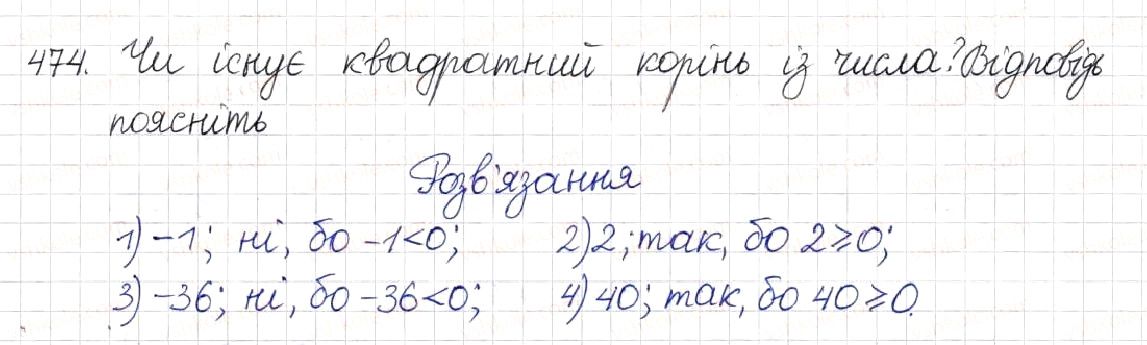 474. Чи існує квадратний корінь із числа? Відповідь
поясніть
Розв'язання
1) -1; ні, бо -1<0; 2) 2; так, бо 2≥0;
3) -36; ні, бо -36<0; 4) 40; так, бо 40≥0.